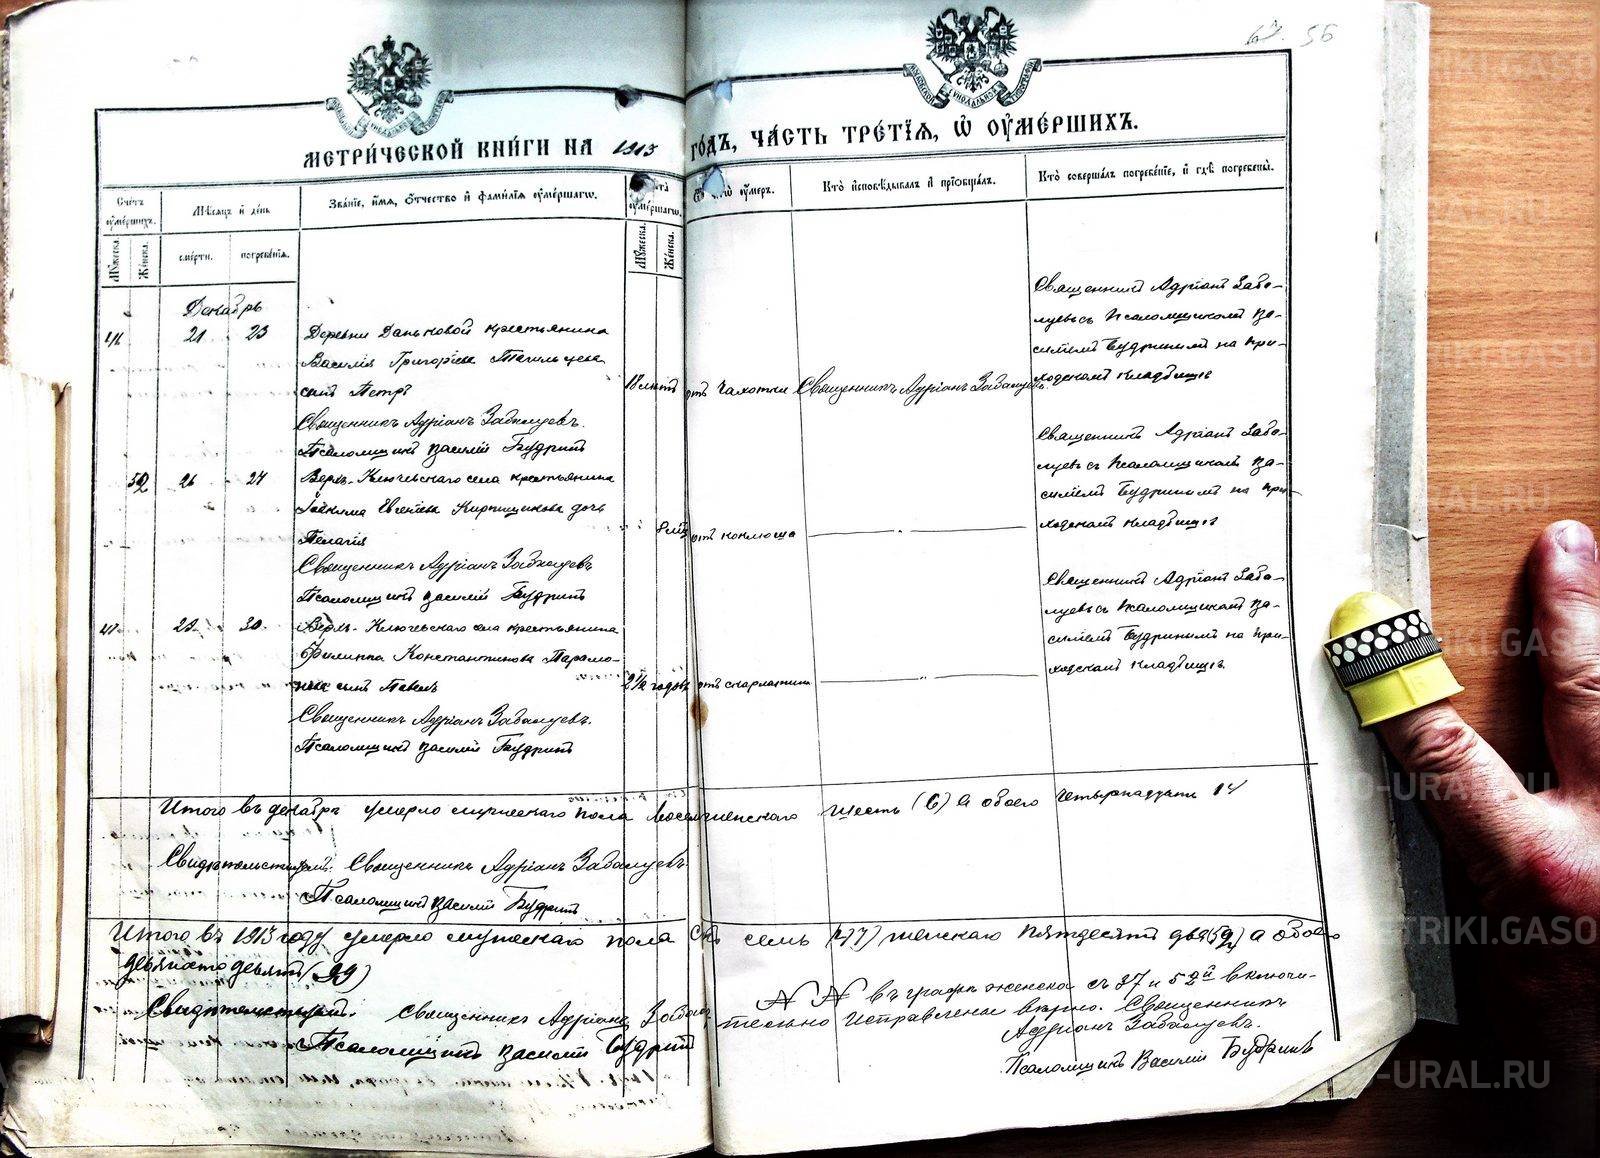 56
МЕТРИ́ЧЕСКОЙ КНИ́ГИ НА 1913 ГО́ДЪ, ЧА́СТЬ ТРЕ́ТІѦ, Ѡ҆ ОУ҆МЕ́РШИХЪ.
Сче́тъ оу҆ме́ршихъ.
Мѣ́сѧцъ и҆ де́нь
Зва́нїе, и҆́мѧ, ѻ҆́тчество и҆ фами́лїѧ оу҆ме́ршагѡ.
оу҆ме́ршагѡ.
Кто̀ и҆сповѣ́дывалъ и҆ прїѡбща́лъ.
Кто̀ соверша́лъ погребе́нїе, и҆ гдѣ̀ погребены̀.
Мꙋ́жеска.
Же́нска.
сме́рти.
погребе́нїѧ.
Мꙋ́жеска.
Же́нска.
Декабрь
21 23
Деревни Даньковой крестьянина
Василія Григорьева
сынъ Петръ
Священникъ Адріанъ Забалуевъ.
Псаломщикъ Василій Будринъ
отъ чахотки
Священникъ Адріанъ Забалуевъ.
Священникъ Адріанъ Заба-
луевъ съ псаломщикомъ Ва-
силіемъ Будринымъ на при-
ходскомъ кладбищѣ
52 26 27
Верхъ-Ключевскаго села крестьянина
Іоакима Евгеніева Кирпищикова дочь
Пелагія
Священникъ Адріанъ Забалуевъ
Псаломщикъ Василій Будринъ
отъ коклюша
Священникъ Адріанъ Заба-
луевъ съ псаломщикомъ Ва-
силіемъ Будринымъ на при-
ходскомъ кладбищѣ
47 29 30
Верхъ-Ключевскаго села крестьянина
Филиппа Константинова Парамо-
нова сынъ Павелъ
Священникъ Адріанъ Забалуевъ.
Псаломщикъ Василій Будринъ
2½ годовъ
отъ скарлатины
Священникъ Адріанъ Заба-
луевъ съ псаломщикомъ Ва-
силіемъ Будринымъ на при-
ходскомъ кладбищѣ
Итого въ декабрѣ умерло мужескаго пола восемь женскаго шесть (6) а обоего четырнадцать 14
Свидѣтельствуемъ: Священникъ Адріанъ Забалуевъ.
Псаломщикъ Василій Будринъ
Итого въ 1913 году умерло мужескаго пола семь (47) женскаго пятьдесятъ два (52) а обоего
девяносто девять (99)
Свидѣтельствуемъ: Священникъ Адріанъ
Псаломщикъ Василій Будринъ
N N въ графѣ женска съ 37 и 52й включи-
тельно исправлены вѣрно. Священникъ
Адріанъ Забалуевъ.
Псаломщикъ Василій Будринъ